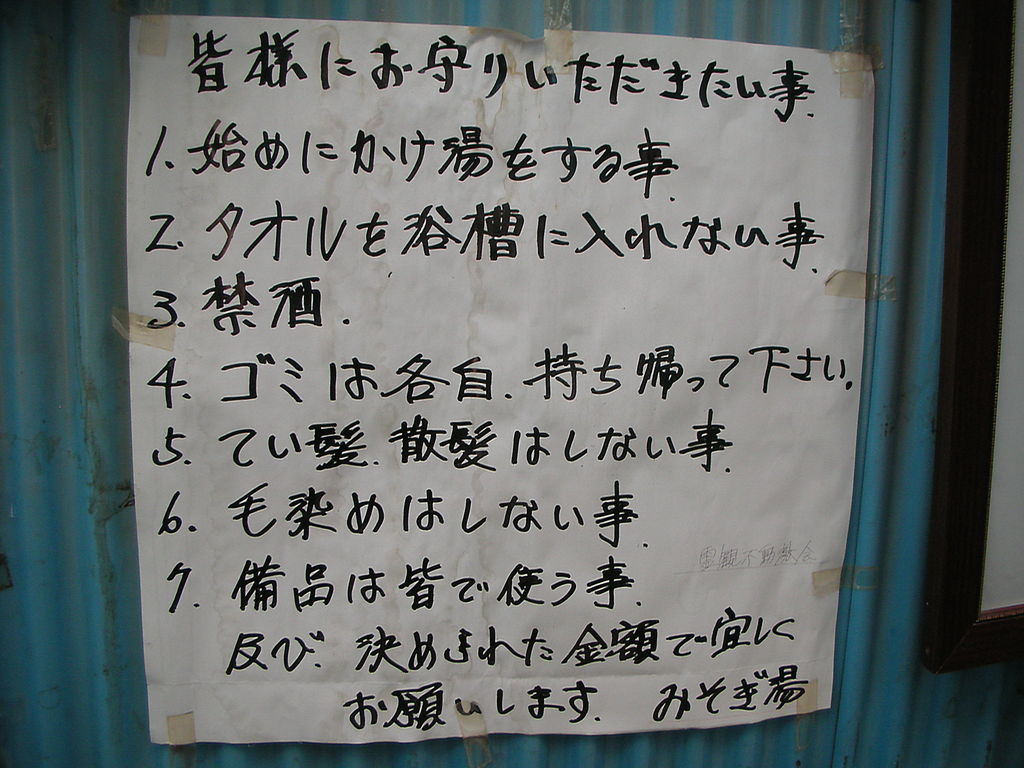 皆様にお守りいただきたい事.
1. 始めにかけ湯をする事.
2. タオルを浴槽に入れない事.
3. 禁酒.
4. ゴミは各自.持ち帰って下さい.
5. てい髪.散髪はしない事.
6. 毛染めはしない事.
不動教会
7. 備品は皆で使う事.
及び.決めされた金額で宜しく
お願いします. みそぎ湯